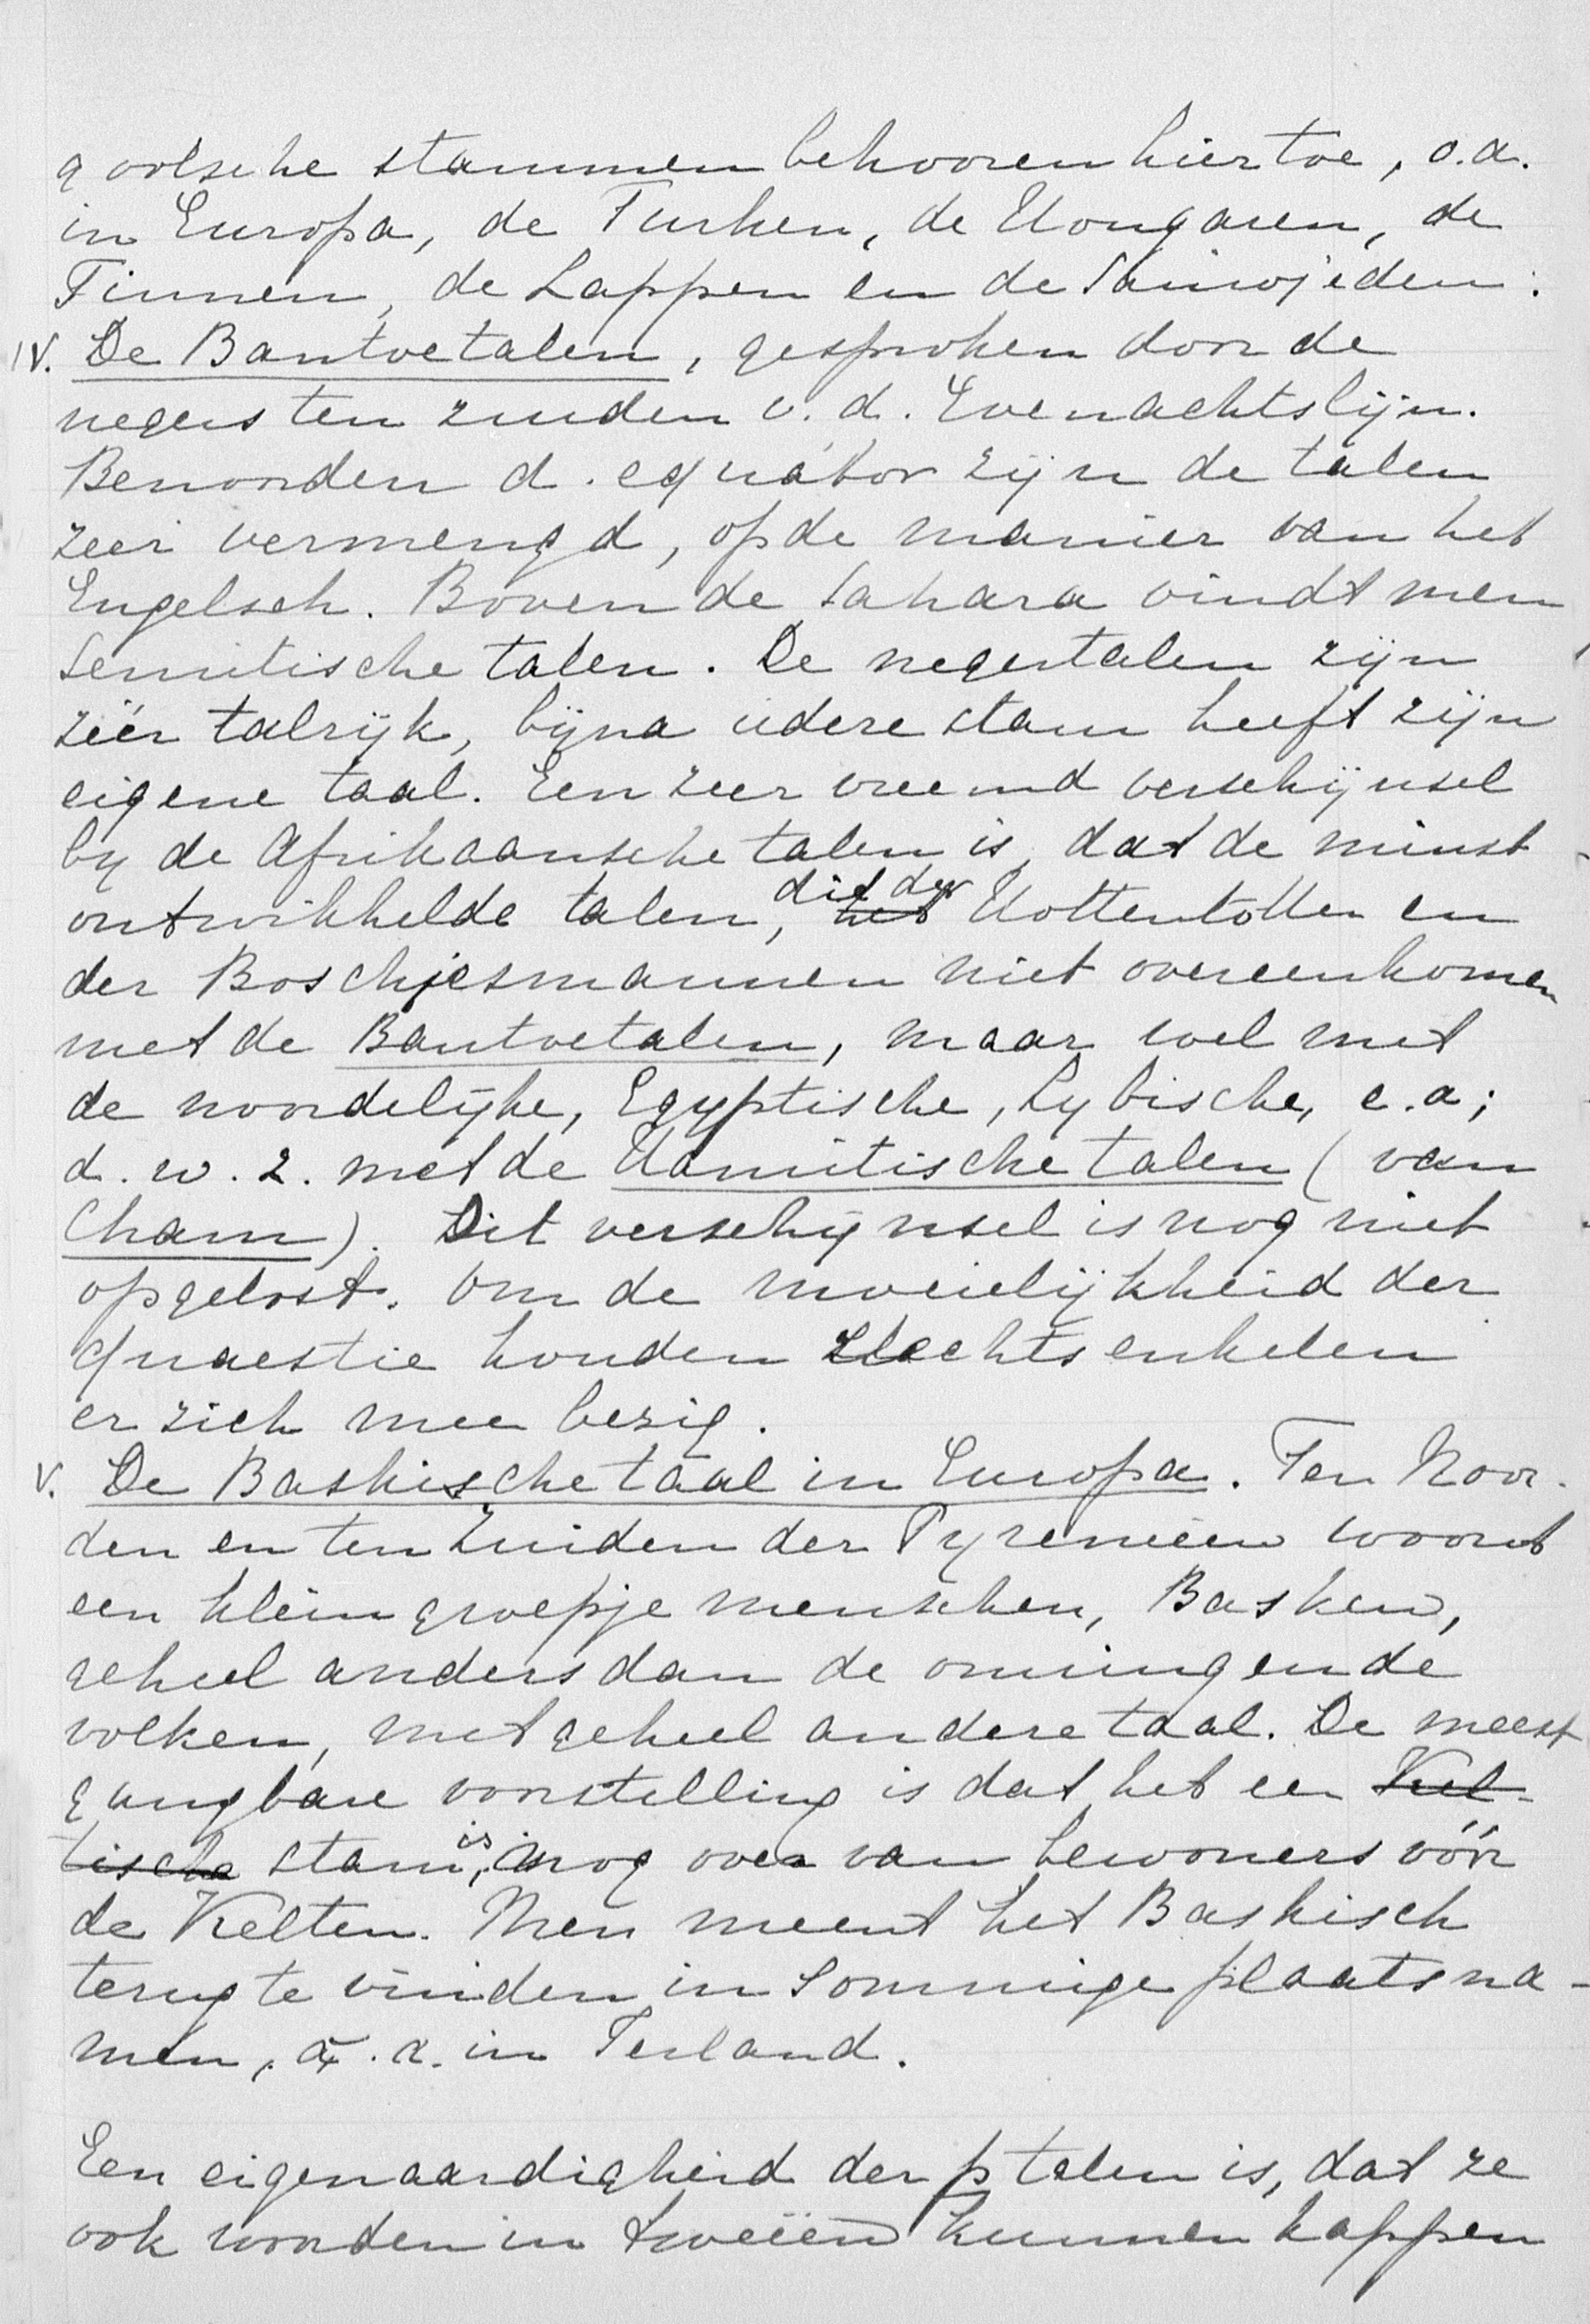 goolsche stammen behooren hiertoe, o.a.
in Europa, de Turken, de Hongaren, de
Finnen, de Lappen en de Samojeden.
IV. De Bantoetalen, gesproken door de
negers ten zuiden v. d. Evenachtslijn.
Benoorden d. equator zijn de talen
zeer vermengd, op de manier van het
Engelsch. Boven de Sahara vindt men
Semitische talen. De negertalen zijn
zéér talrijk, bijna iedere stam heeft zijn
eigene taal. Een zeer vreemd verschijnsel
bij de Afrikaansche talen is, dat de minst
ontwikkelde talen, ~~het~~ dit der Hottentotten en
der Boschjesmannen niet overeenkomen
met de Bantoetalen, maar wel met
de noordelijke, Egyptische, Lybische, e.a;
d.w.z. met de Hamitische talen (van
Cham). Dit verschijnsel is nog niet
opgelost. Om de moeielijkheid der
quaestie houden slechts enkelen
er zich mee bezig.
V. De Baskische taal in Europa. Ten Noor-
den en ten Zuiden der Pyreneeën woont
een klein groepje menschen, Basken,
geheel anders dan de omringende
volken, met geheel andere taal. De meest
gangbare voorstelling is dat het een ~~Kel-~~
~~tische~~ stam is, nog over van bewoners vóór
de Kelten. Men meent het Baskisch
terug te vinden in sommige plaatsna-
men, o.a. in Ierland.
Een eigenaardigheid der p talen is, dat ze
ook woorden in tweeën kunnen kappen